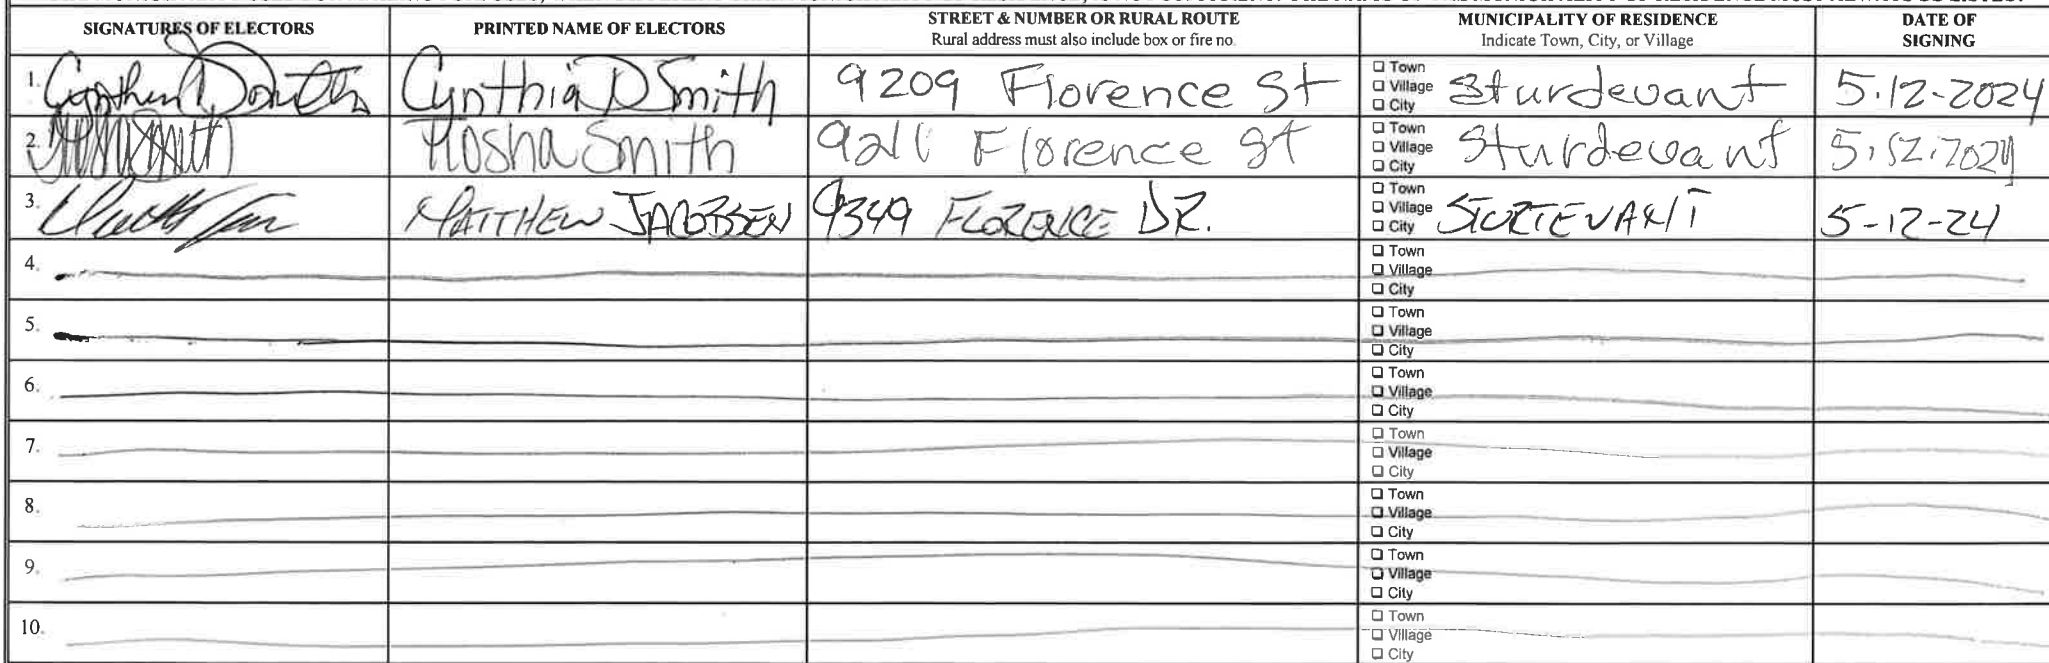 SIGNATURES OF ELECTORS PRINTED NAME OF ELECTORS STREET & NUMBER OR RURAL ROUTE MUNICIPALITY OF RESIDENCE DATE OF
Rural address must also include box or fire no. Indicate Town, City, or Village SIGNING
1. Cynthia D Smith Cynthia D Smith 9209 Florence St ☐ Town ☐ Village ☐ City Sturdevant 5.12-2024
2. Smith 9211 Florence St ☐ Town ☐ Village ☐ City Sturdevant 5.12.2024
3. MATTHEW JACOBSEN 9349 FLORENCE DR. ☐ Town ☐ Village ☐ City STURTEVANT 5-12-24
4. ☐ Town ☐ Village ☐ City
5. ☐ Town ☐ Village ☐ City
6. ☐ Town ☐ Village ☐ City
7. ☐ Town ☐ Village ☐ City
8. ☐ Town ☐ Village ☐ City
9. ☐ Town ☐ Village ☐ City
10. ☐ Town ☐ Village ☐ City